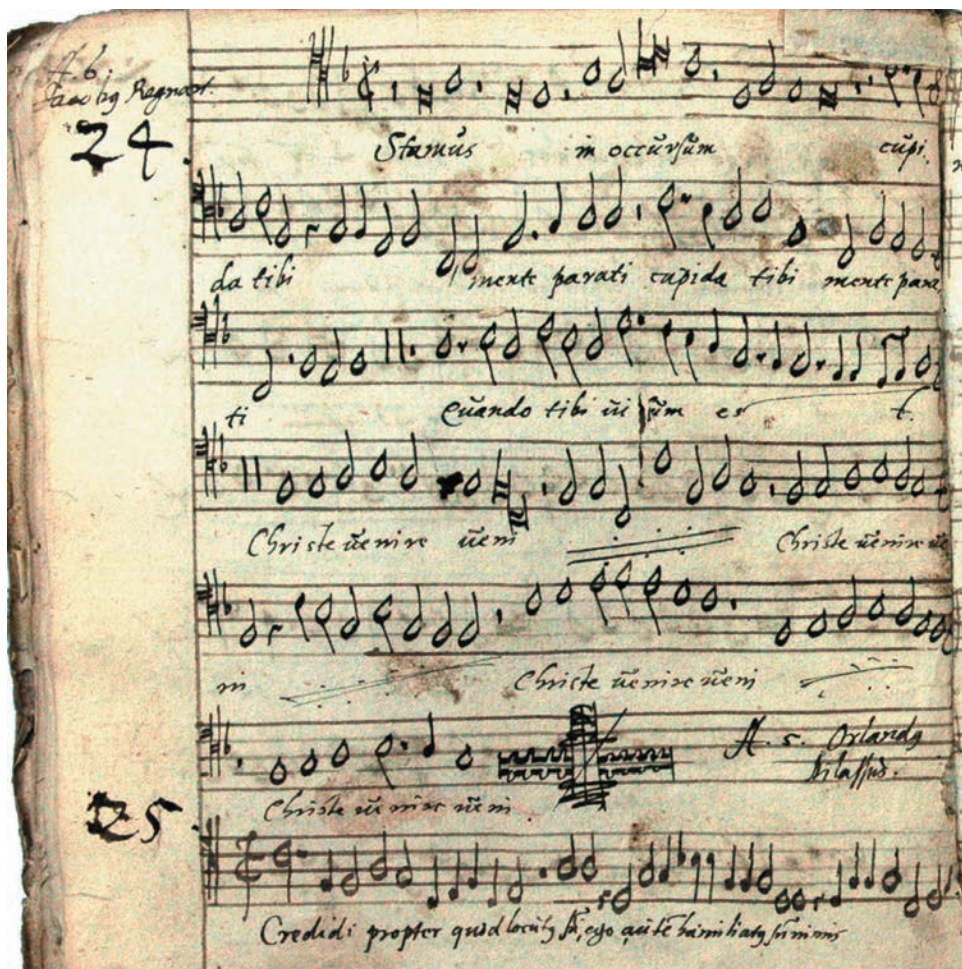 A. 6.
Jacobus Regnart.
24.
Stamus in occursum cupi,
da tibi mente parati cupida tibi mente para
ti Quando tibi visum est.
Christe venire veni Christe venire ve
ni Christe venire veni
A. 5. Orlandus
di lassus.
Christe venire veni
25.
Credidi propter quod locutus sũ, ego autẽ humiliatus sũ nimis